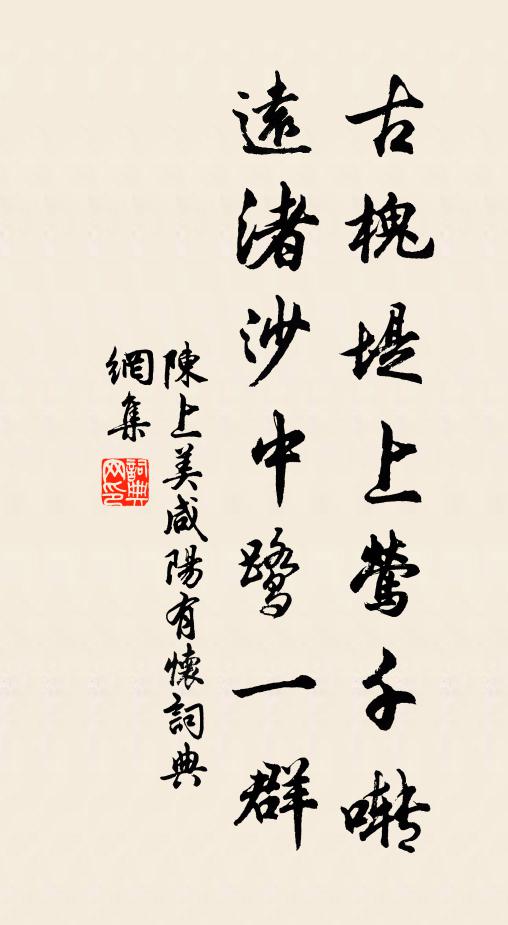 古槐堤上鶯千囀
遠渚沙中鷺一群
陳上美咸陽有懷詞典
網集
詞典網印